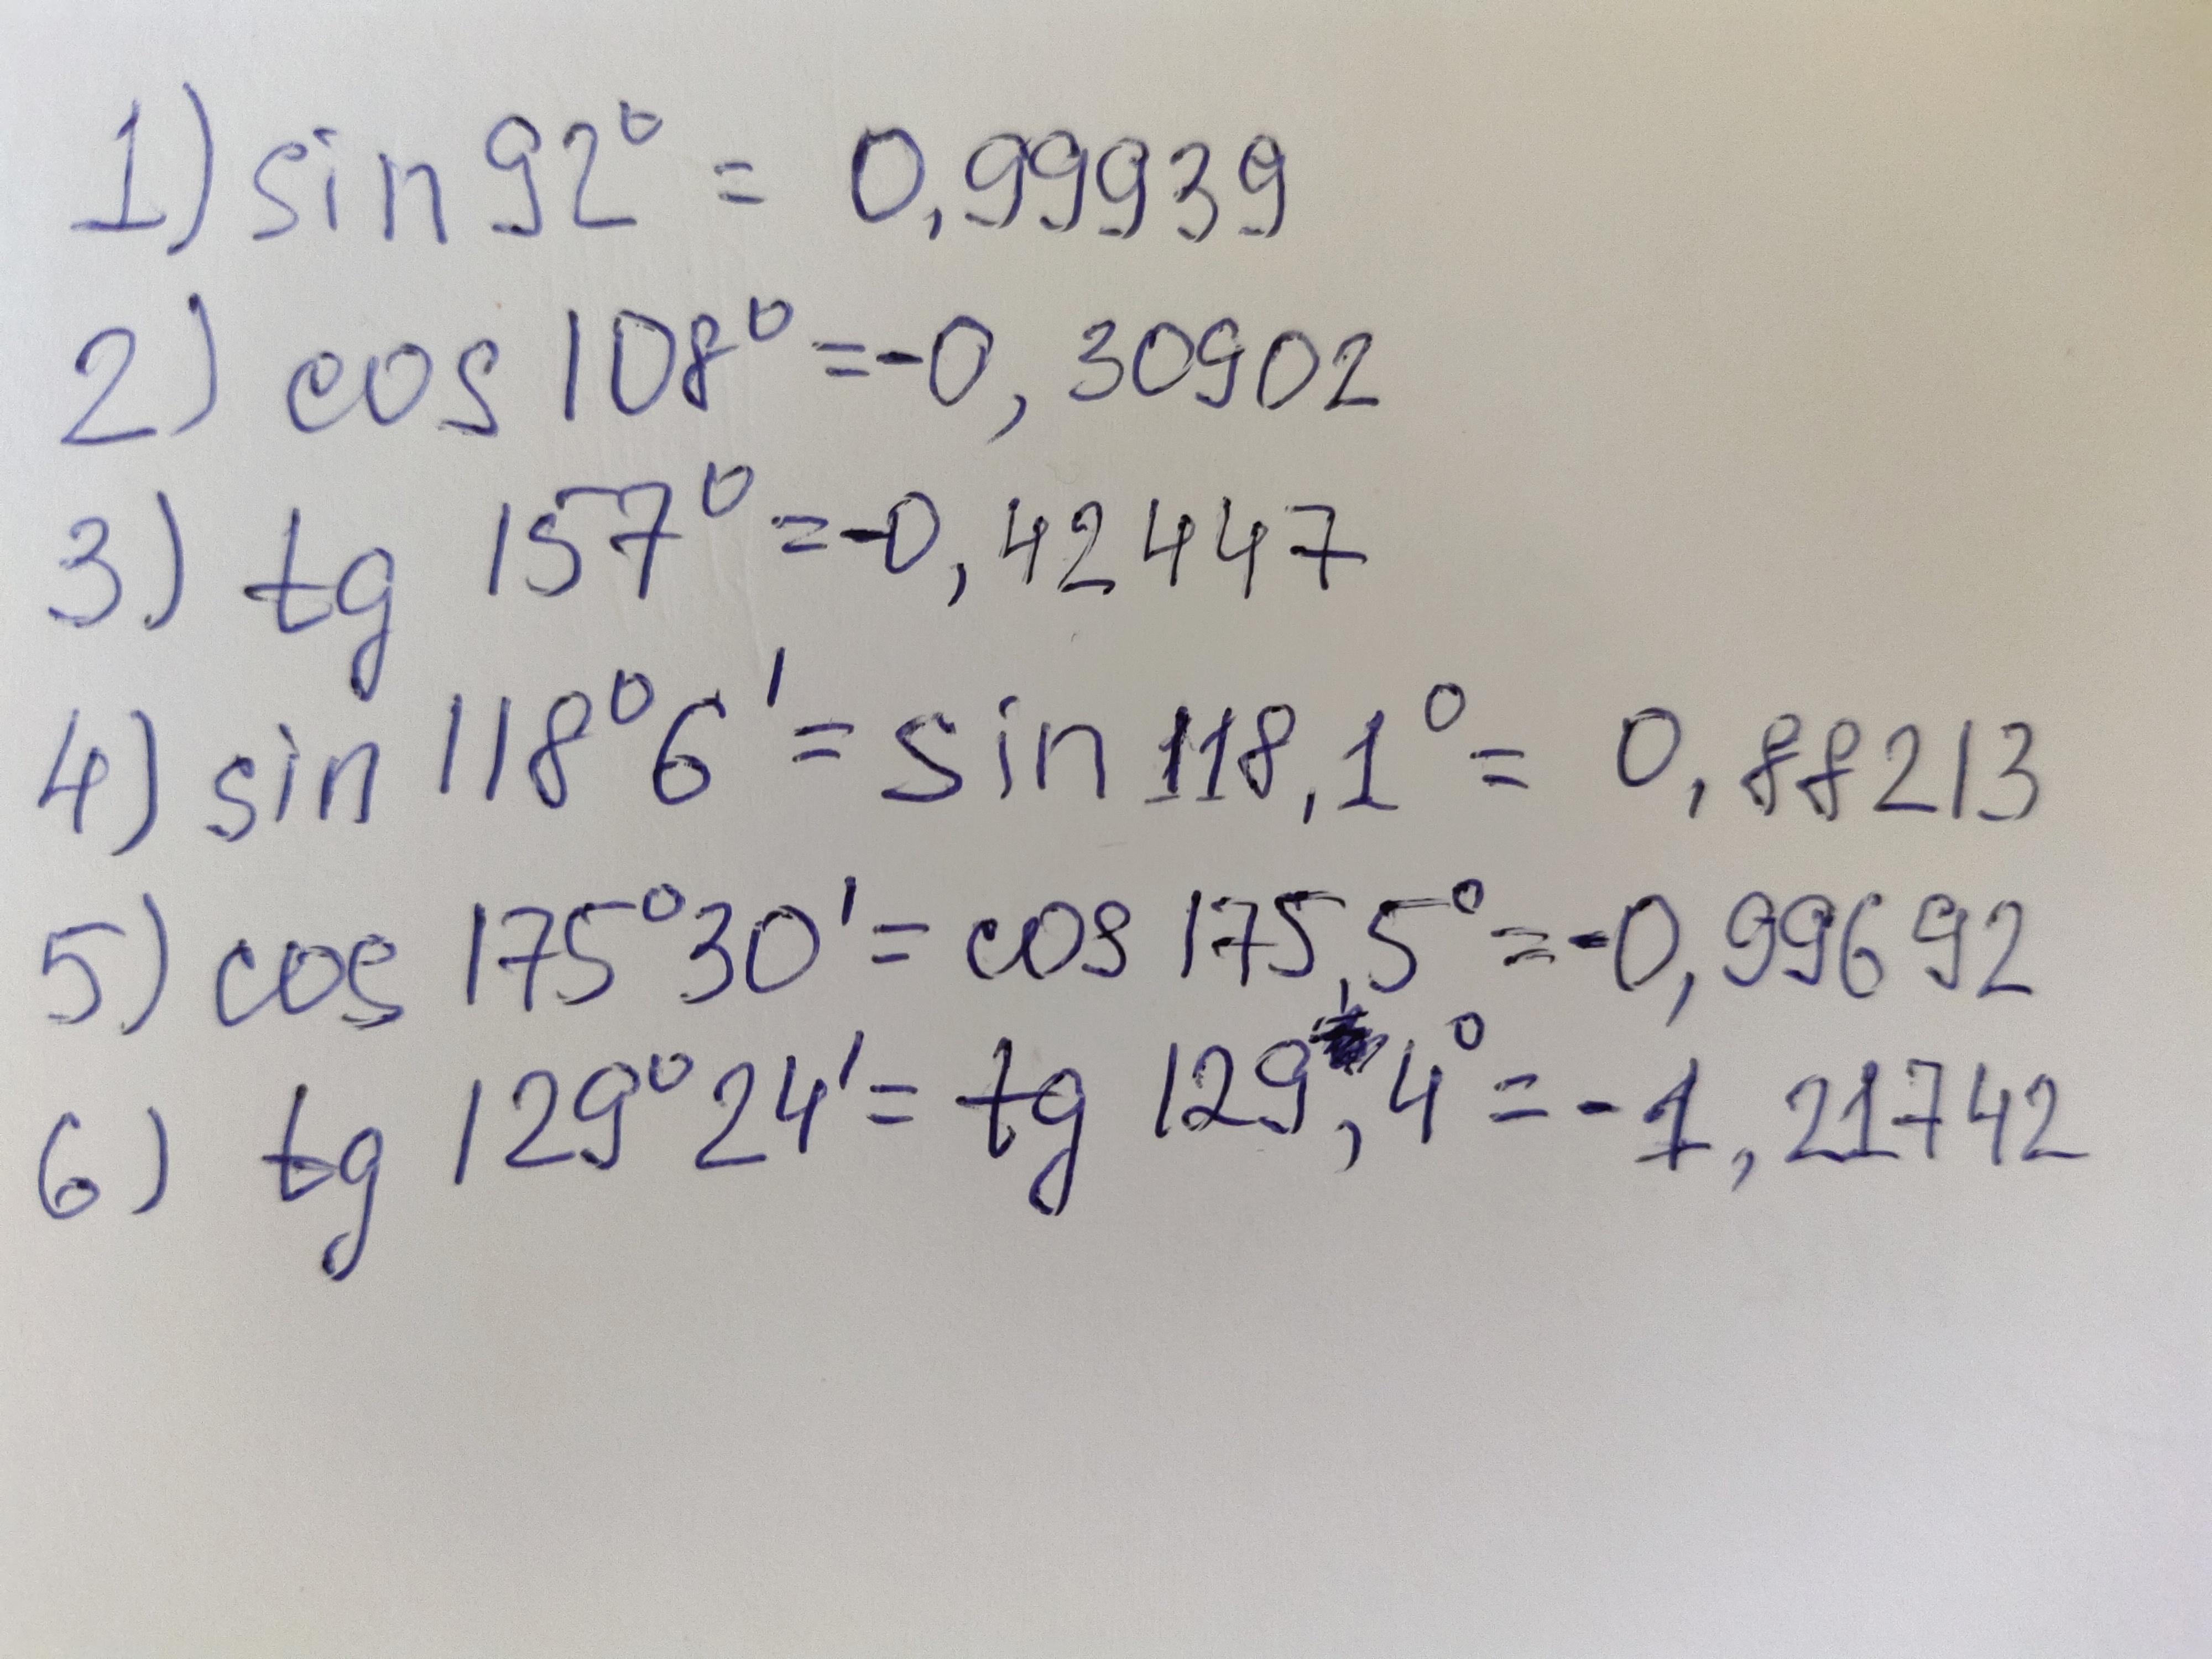 1) sin 92° = 0,99939
2) cos 108° = -0,30902
3) tg 157° = -0,42447
4) sin 118°6' = sin 118,1° = 0,88213
5) cos 175°30' = cos 175,5° = -0,99692
6) tg 129°24' = tg 129,4° = -1,21742